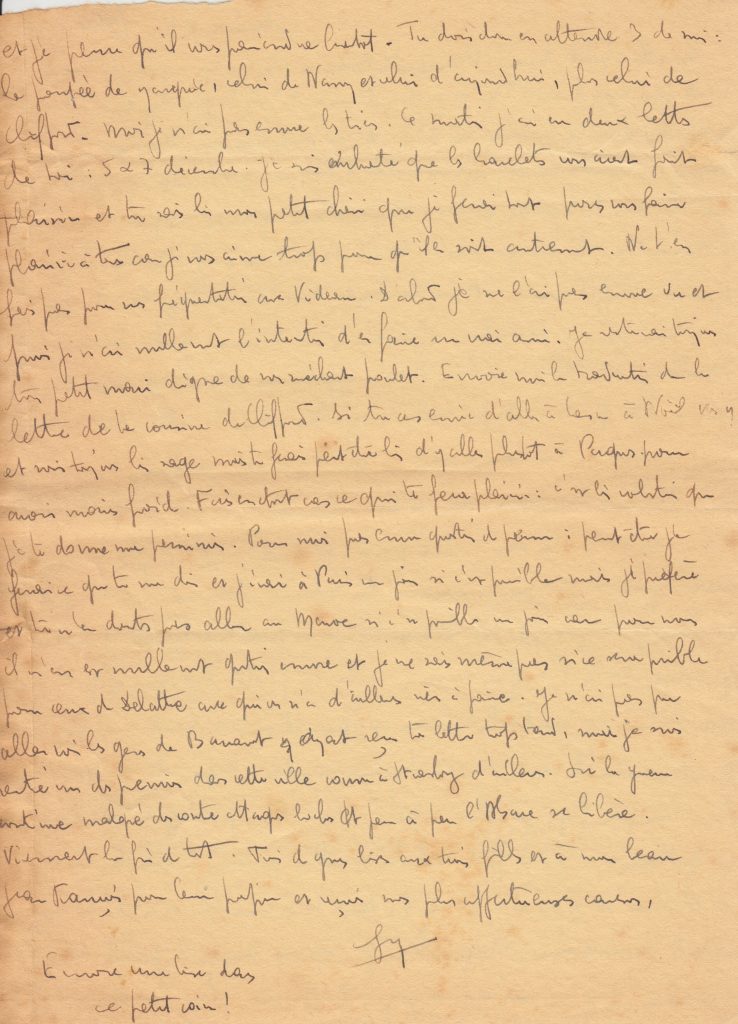 et je pense qu'il vous parviendra bientôt. Tu dois donc en attendre 3 de moi :
la poupée de, celui de Nancy et celui d'aujourd'hui, plus celui de
Clifford. Moi je n'ai pas encore les tiens. Ce matin j'ai eu deux lettres
de toi : 5 & 7 décembre. Je suis enchanté que les bracelets vous aient fait
plaisir et tu sais bien mon petit chéri que je ferai tout pour vous faire
plaisir à tous car je vous aime trop pour qu'il en soit autrement. Ne t'en
fais pas pour mes fréquentations aux Videau. D'abord je ne l'ai pas encore vu et
puis je n'ai nullement l'intention d'en faire un vrai ami. Je resterai toujours
ton petit mari digne de son méchant poulet. Envoie moi la traduction de la
lettre de la cousine de Clifford. Si tu as envie d'aller à à Noël vas y
et sois toujours bien sage mais tu ferais peut être bien d'y aller plutôt à Pâques pour
avoir moins froid. Fais en tout cas ce qui te fera plaisir : c'est bien volontiers que
je te donne ma permission. Pour moi pas encore question de perm : peut être je
ferai ce que tu me dis et j'irai à Paris un jour si c'est possible mais je préfère
et tu n'en doutes pas aller au Maroc si c'est possible un jour car pour nous
il n'en est nullement question encore et je ne sais même pas si ce sera possible
pour ceux de Delattre avec qui on n'a d'ailleurs rien à faire. Je n'ai pas pu
aller voir les gens de ayant reçu ta lettre trop tard, mais je suis
rentré un des premiers dans cette ville comme à Strasbourg d'ailleurs. Ici la guerre
continue malgré des contre attaques locales et peu à peu l'Alsace se libère.
Vivement la fin de tout. Tu diras aux trois filles et à mon beau
Jean François pour leur papa et reçois mes plus affectueuses caresses,
Encore une bise dans
ce petit coin !